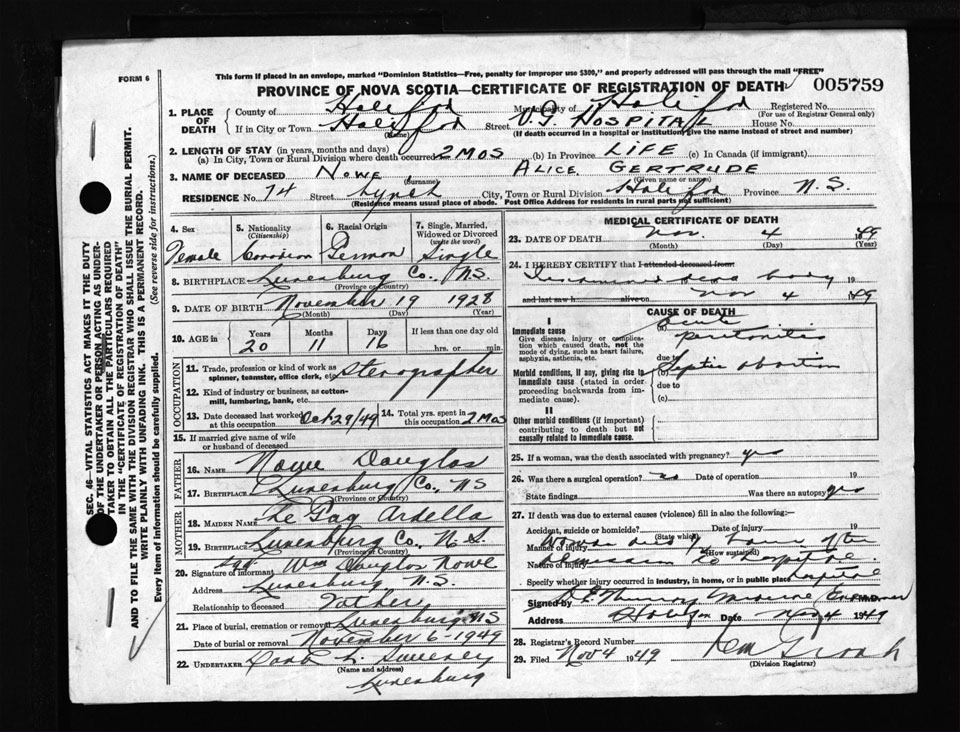 FORM 6
This form if placed in an envelope, marked "Dominion Statistics—Free, penalty for improper use $300," and properly addressed will pass through the mail "FREE"
PROVINCE OF NOVA SCOTIA—CERTIFICATE OF REGISTRATION OF DEATH 005759
1. PLACE OF DEATH
County of Halifax Municipality of Halifax Registered No.
(For use of Registrar General only)
If in City or Town Halifax Street V.G. HOSPITAL House No.
(Name) (If death occurred in a hospital or institution, give the name instead of street and number)
2. LENGTH OF STAY (in years, months and days)
(a) In City, Town or Rural Division where death occurred 2 MOS (b) In Province LIFE (c) In Canada (if immigrant)
3. NAME OF DECEASED NOWE ALICE GERTRUDE
(Surname) (Given name or names)
RESIDENCE No. 74 Street Lynch City, Town or Rural Division Halifax Province N.S.
(Residence means usual place of abode. Post Office Address for residents in rural parts not sufficient)
SEC. 46—VITAL STATISTICS ACT MAKES IT THE DUTY
OF THE UNDERTAKER OR PERSON ACTING AS UNDER-
TAKER TO OBTAIN ALL THE PARTICULARS REQUIRED
IN THE "CERTIFICATE OF REGISTRATION OF DEATH"
AND TO FILE THE SAME WITH THE DIVISION REGISTRAR WHO SHALL ISSUE THE BURIAL PERMIT.
WRITE PLAINLY WITH UNFADING INK. THIS IS A PERMANENT RECORD.
Every item of information should be carefully supplied. (See reverse side for instructions.)
4. Sex
Female
5. Nationality
(Citizenship)
Canadian
6. Racial Origin
German
7. Single, Married, Widowed or Divorced
(write the word)
Single
8. BIRTHPLACE Lunenburg Co., N.S.
(Province or Country)
9. DATE OF BIRTH November 19 1928
(Month) (Day) (Year)
10. AGE in Years Months Days If less than one day old
20 11 16 hrs. or min.
OCCUPATION
11. Trade, profession or kind of work as spinner, teamster, office clerk, etc. stenographer
12. Kind of industry or business, as cotten-mill, lumbering, bank, etc.
13. Date deceased last worked at this occupation Oct 29/49
14. Total yrs. spent in this occupation 2 MOS
15. If married give name of wife or husband of deceased
FATHER
16. NAME Nowe Douglas
17. BIRTHPLACE Lunenburg Co., NS
(Province or Country)
MOTHER
18. MAIDEN NAME Le Gag Ardella
19. BIRTHPLACE Lunenburg Co. N.S.
(Province or Country)
20. Signature of informant Sgd Wm Douglas Nowe
Address Lunenburg N.S.
Relationship to deceased Father
21. Place of burial, cremation or removal Lunenburg NS
Date of burial or removal November 6-1949
22. UNDERTAKER Sweeney
(Name and address)
Lunenburg
MEDICAL CERTIFICATE OF DEATH
23. DATE OF DEATH Nov. 4 1949
(Month) (Day) (Year)
24. I HEREBY CERTIFY that I attended deceased from:
Examined dead body 19
and last saw h alive on Nov 4 1949
CAUSE OF DEATH
I
Immediate cause
Give disease, injury or complication which caused death, not the mode of dying, such as heart failure, asphyxia, asthenia, etc.
(a) acute peritonitis
due to
Morbid conditions, if any, giving rise to immediate cause (stated in order proceeding backwards from immediate cause).
(b) Septic abortion
due to
(c)
II
Other morbid conditions (if important) contributing to death but not causally related to immediate cause.
25. If a woman, was the death associated with pregnancy? yes
26. Was there a surgical operation? no Date of operation 19
State findings Was there an autopsy yes
27. If death was due to external causes (violence) fill in also the following:—
Accident, suicide or homicide? Date of injury 19
(State which)
Manner of injury Woman died 1 hour after
(How sustained)
Nature of injury admission to hospital.
Specify whether injury occurred in industry, in home, or in public place hospital
Signed by Murray Medical Examiner M.D.
Address Halifax Date Nov 4 1949
28. Registrar's Record Number
29. Filed Nov 4 1949
(Division Registrar)